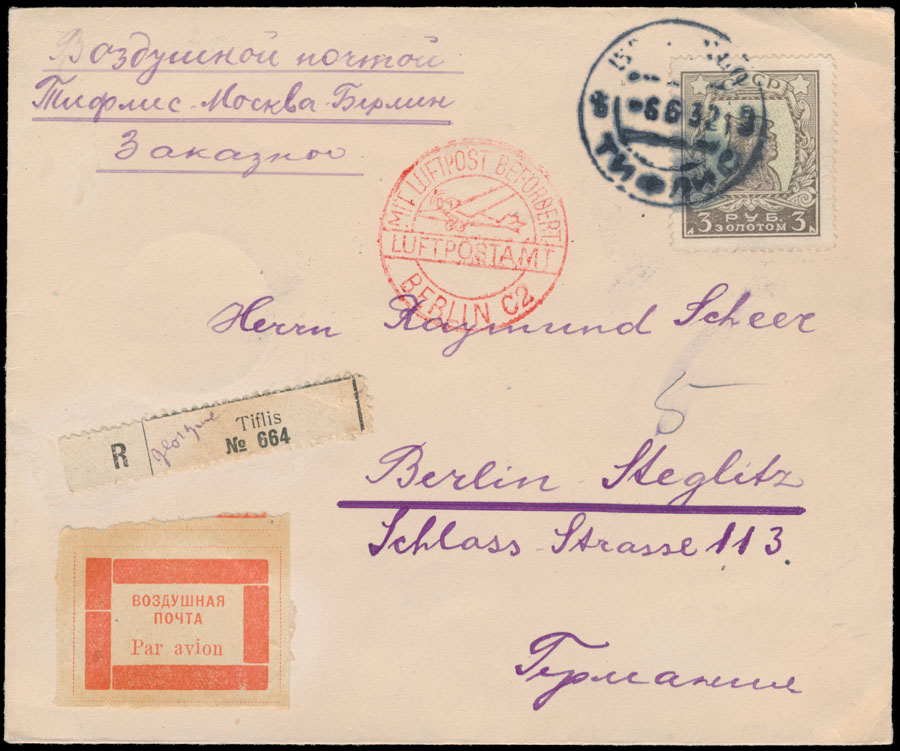 Воздушной почтой
Тифлис-Москва Берлин
Заказное
6 6 32
ТИФЛИС
СССР
3 РУБ. 3
ЗОЛОТОМ
MIT LUFTPOST BEFÖRDERT
LUFTPOSTAMT
BERLIN C2
Herrn Raymund Scheer
5
R
Tiflis
№ 664
Berlin-Steglitz
Schloss-Strasse 113.
ВОЗДУШНАЯ
ПОЧТА
Par avion
Германия